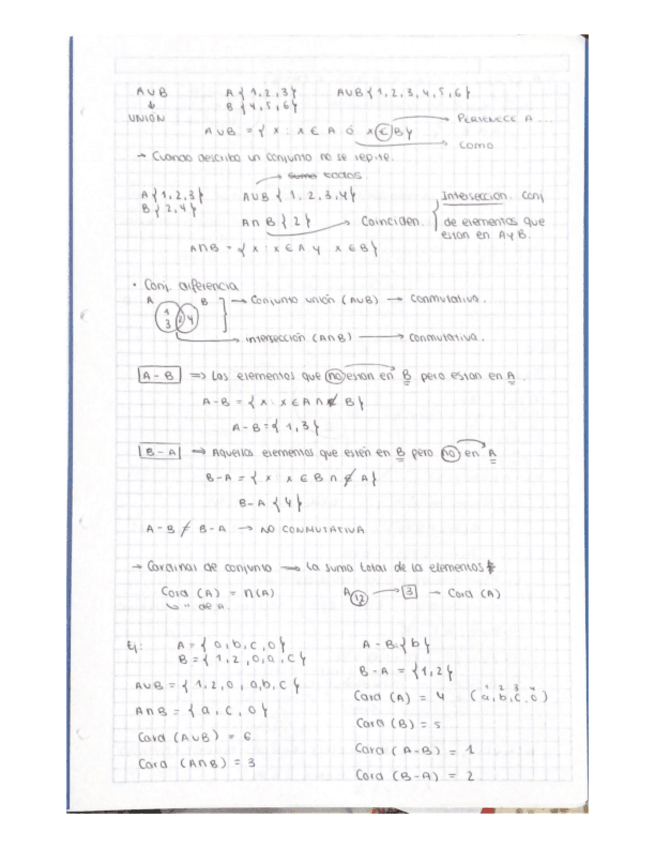 A∪B A{1,2,3} A∪B{1,2,3,4,5,6}
↓ B{4,5,6}
UNIÓN
A∪B = {x : x ∈ A ó x ∈ B} → PERTENECE A ...
→ como
→ Cuando describo un conjunto no se repite.
→ suma todos.
A{1,2,3} A∪B { 1,2,3,4}
B{2,4}
A∩B {2} → Coinciden.
Intersección. Conj
de elementos que
están en A y B.
A∩B = {x : x ∈ A y x ∈ B}
· Conj. diferencia
A B → Conjunto unión (A∪B) → Conmutativa.
1 3 2 4
→ intersección (A∩B) → conmutativa.
A-B => Los elementos que no están en B pero están en A.
A-B = {x : x ∈ A ∩ ∉ B}
A-B = {1,3}
B-A => Aquellos elementos que estén en B pero no en A
B-A = {x : x ∈ B ∩ ∉ A}
B-A {4}
A-B ≠ B-A → NO CONMUTATIVA
→ Cardinal de conjunto → La suma total de la elementos
Card (A) = n(A) A 12 → 3 → Card (A)
↳ n de A.
Ej: A = {0,b,c,0} A-B={b}
B = {1,2,0,a,c} B-A = {1,2}
A∪B = {1,2,0,a,b,c} Card (A) = 4 (a,b,c,0)
1 2 3 4
A∩B = {a,c,0} Card (B) = 5
Card (A∪B) = 6 Card (A-B) = 1
Card (A∩B) = 3 Card (B-A) = 2